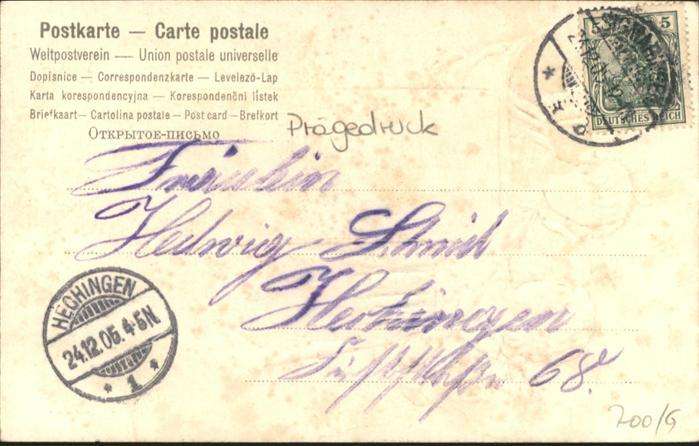 Postkarte — Carte postale
Weltpostverein — Union postale universelle
Dopisnice — Correspondenzkarte — Levelező-Lap
Karta korespondencyjna — Korespondenční lístek
Briefkaart — Cartolina postale — Post card — Brefkort
ОТКРЫТОЕ-ПИСЬМО
5 5
DEUTSCHES REICH
Prägedruck
Fräulein
Hedwig Schmid
Hechingen
68.
HECHINGEN
24.12.05. 4-5N.
* 1 *
700/G